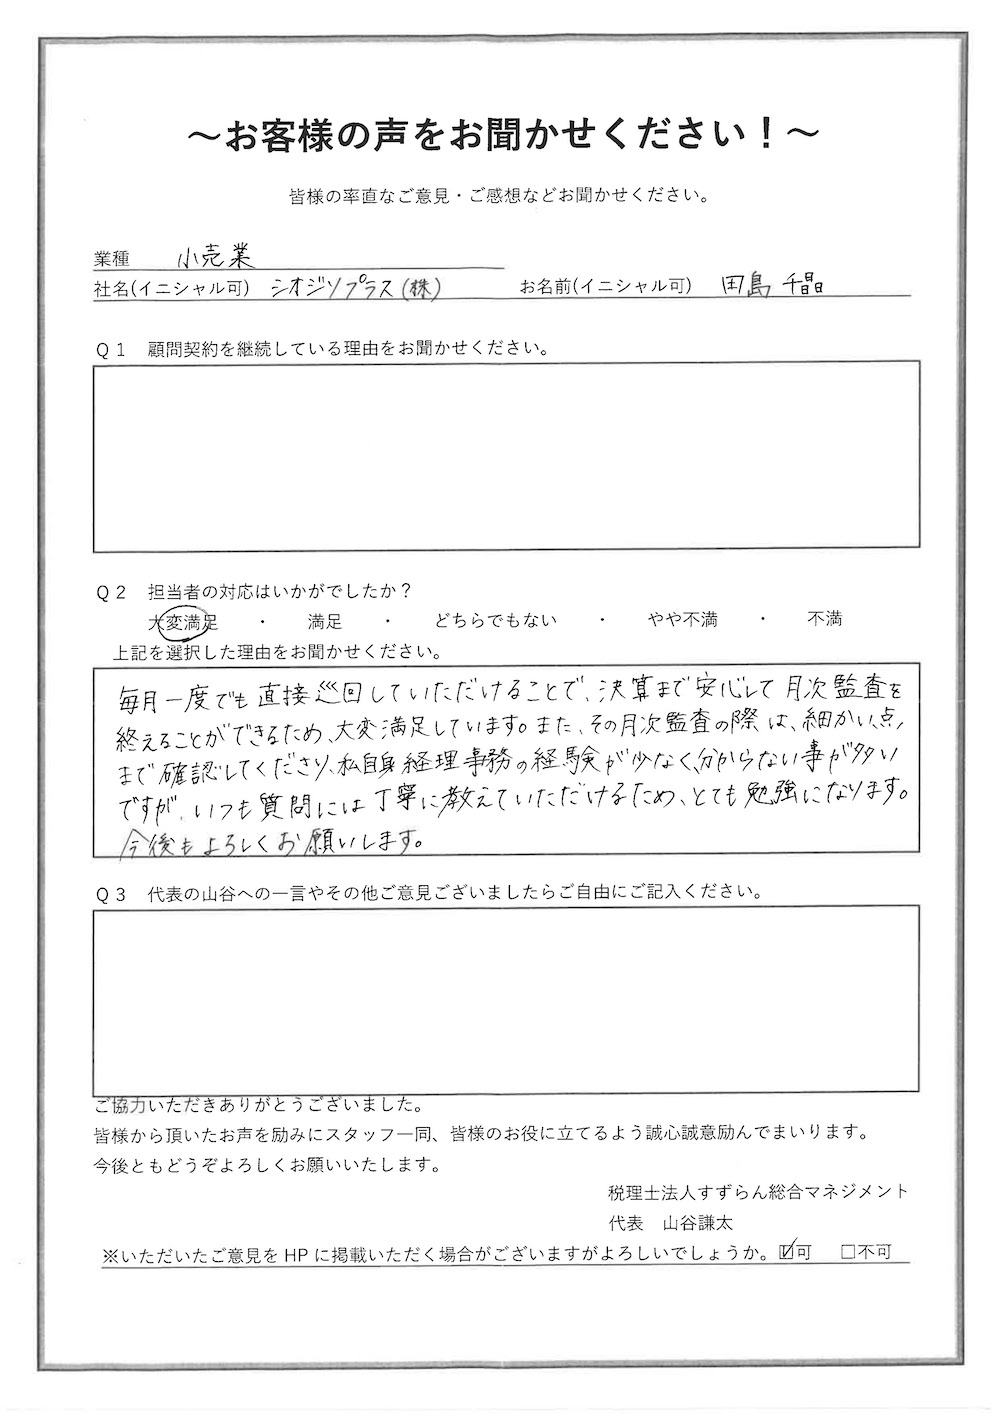 ～お客様の声をお聞かせください！～
皆様の率直なご意見・ご感想などお聞かせください。
業種 小売業
社名(イニシャル可) シオジリプラス(株) お名前(イニシャル可) 田島 千晶
Q1 顧問契約を継続している理由をお聞かせください。
Q2 担当者の対応はいかがでしたか？
大変満足 ・ 満足 ・ どちらでもない ・ やや不満 ・ 不満
上記を選択した理由をお聞かせください。
毎月一度でも直接巡回していただけることで、決算まで安心して月次監査を
終えることができるため、大変満足しています。また、その月次監査の際は、細かい点
まで確認してくださり、私自身経理事務の経験が少なく、分からない事が多い
ですが、いつも質問には丁寧に教えていただけるため、とても勉強になります。
今後もよろしくお願いします。
Q3 代表の山谷への一言やその他ご意見ございましたらご自由にご記入ください。
ご協力いただきありがとうございました。
皆様から頂いたお声を励みにスタッフ一同、皆様のお役に立てるよう誠心誠意励んでまいります。
今後ともどうぞよろしくお願いいたします。
税理士法人すずらん総合マネジメント
代表 山谷謙太
※いただいたご意見をHPに掲載いただく場合がございますがよろしいでしょうか。☑可 □不可